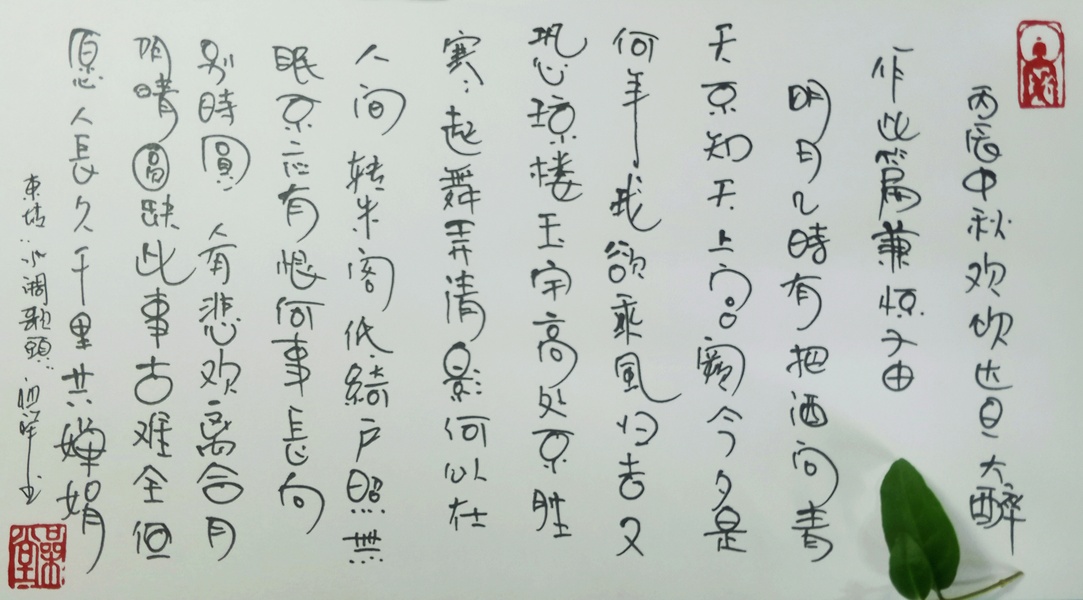 丙辰中秋欢饮达旦大醉
作此篇兼怀子由
明月几時有把酒问青
天不知天上宫闕今夕是
何年我欲乘風归去又
恐琼楼玉宇高处不胜
寒:起舞弄清影何似在
人间转朱阁低綺户照無
眠不应有恨何事長向
别時圓人有悲欢离合月
阴晴圆缺此事古难全但
愿人長久千里共嬋娟
東坡:水調歌頭
书